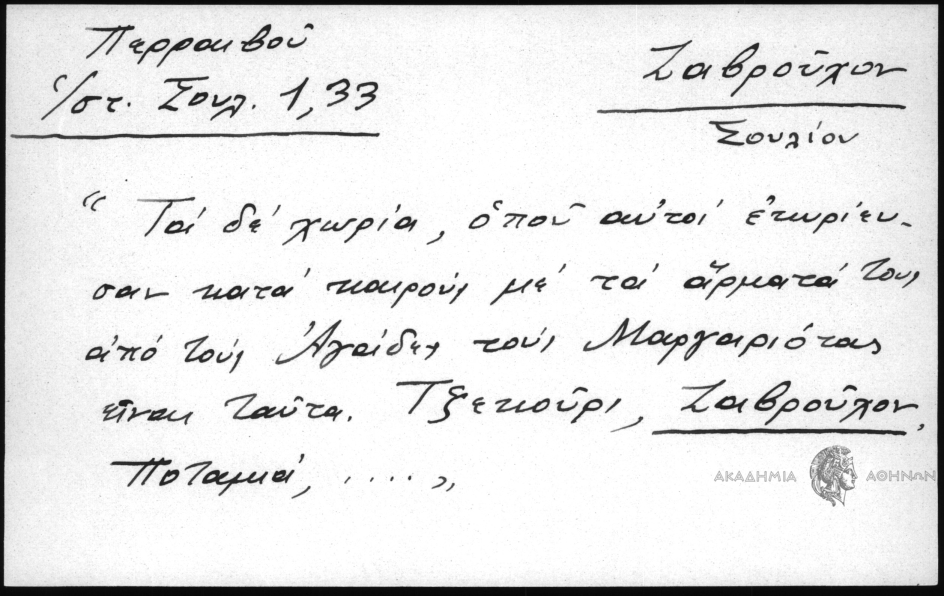 Περραιβοῦ
Ἱστ. Σουλ. 1,33
Ζαβροῦχον
Σουλίου
“ Τά δέ χωρία, ὁποῦ αὐτοί ἐκυρίευ-
σαν κατά καιρούς μέ τά ἄρματά τους
ἀπό τούς Ἀγάδες τούς Μαργαριότας
εἶναι ταῦτα. Τζεκοῦρι, Ζαβροῦχον,
Ποταμιά, .... „
ΑΚΑΔΗΜΙΑ ΑΘΗΝΩΝ